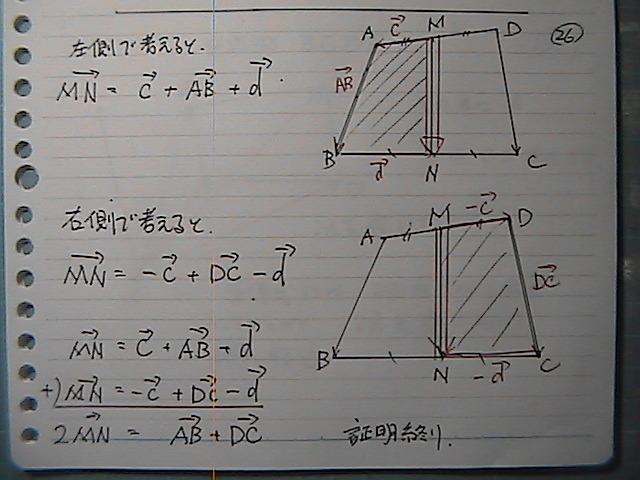 左側で考えると.
→MN = →c + →AB + →d
A →c M D
㉖
→AB
B →d N C
右側で考えると.
→MN = -→c + →DC - →d
A M -→c D
→DC
B N -→d C
→MN = →c + →AB + →d
+) →MN = -→c + →DC - →d
2→MN = →AB + →DC
証明終り.